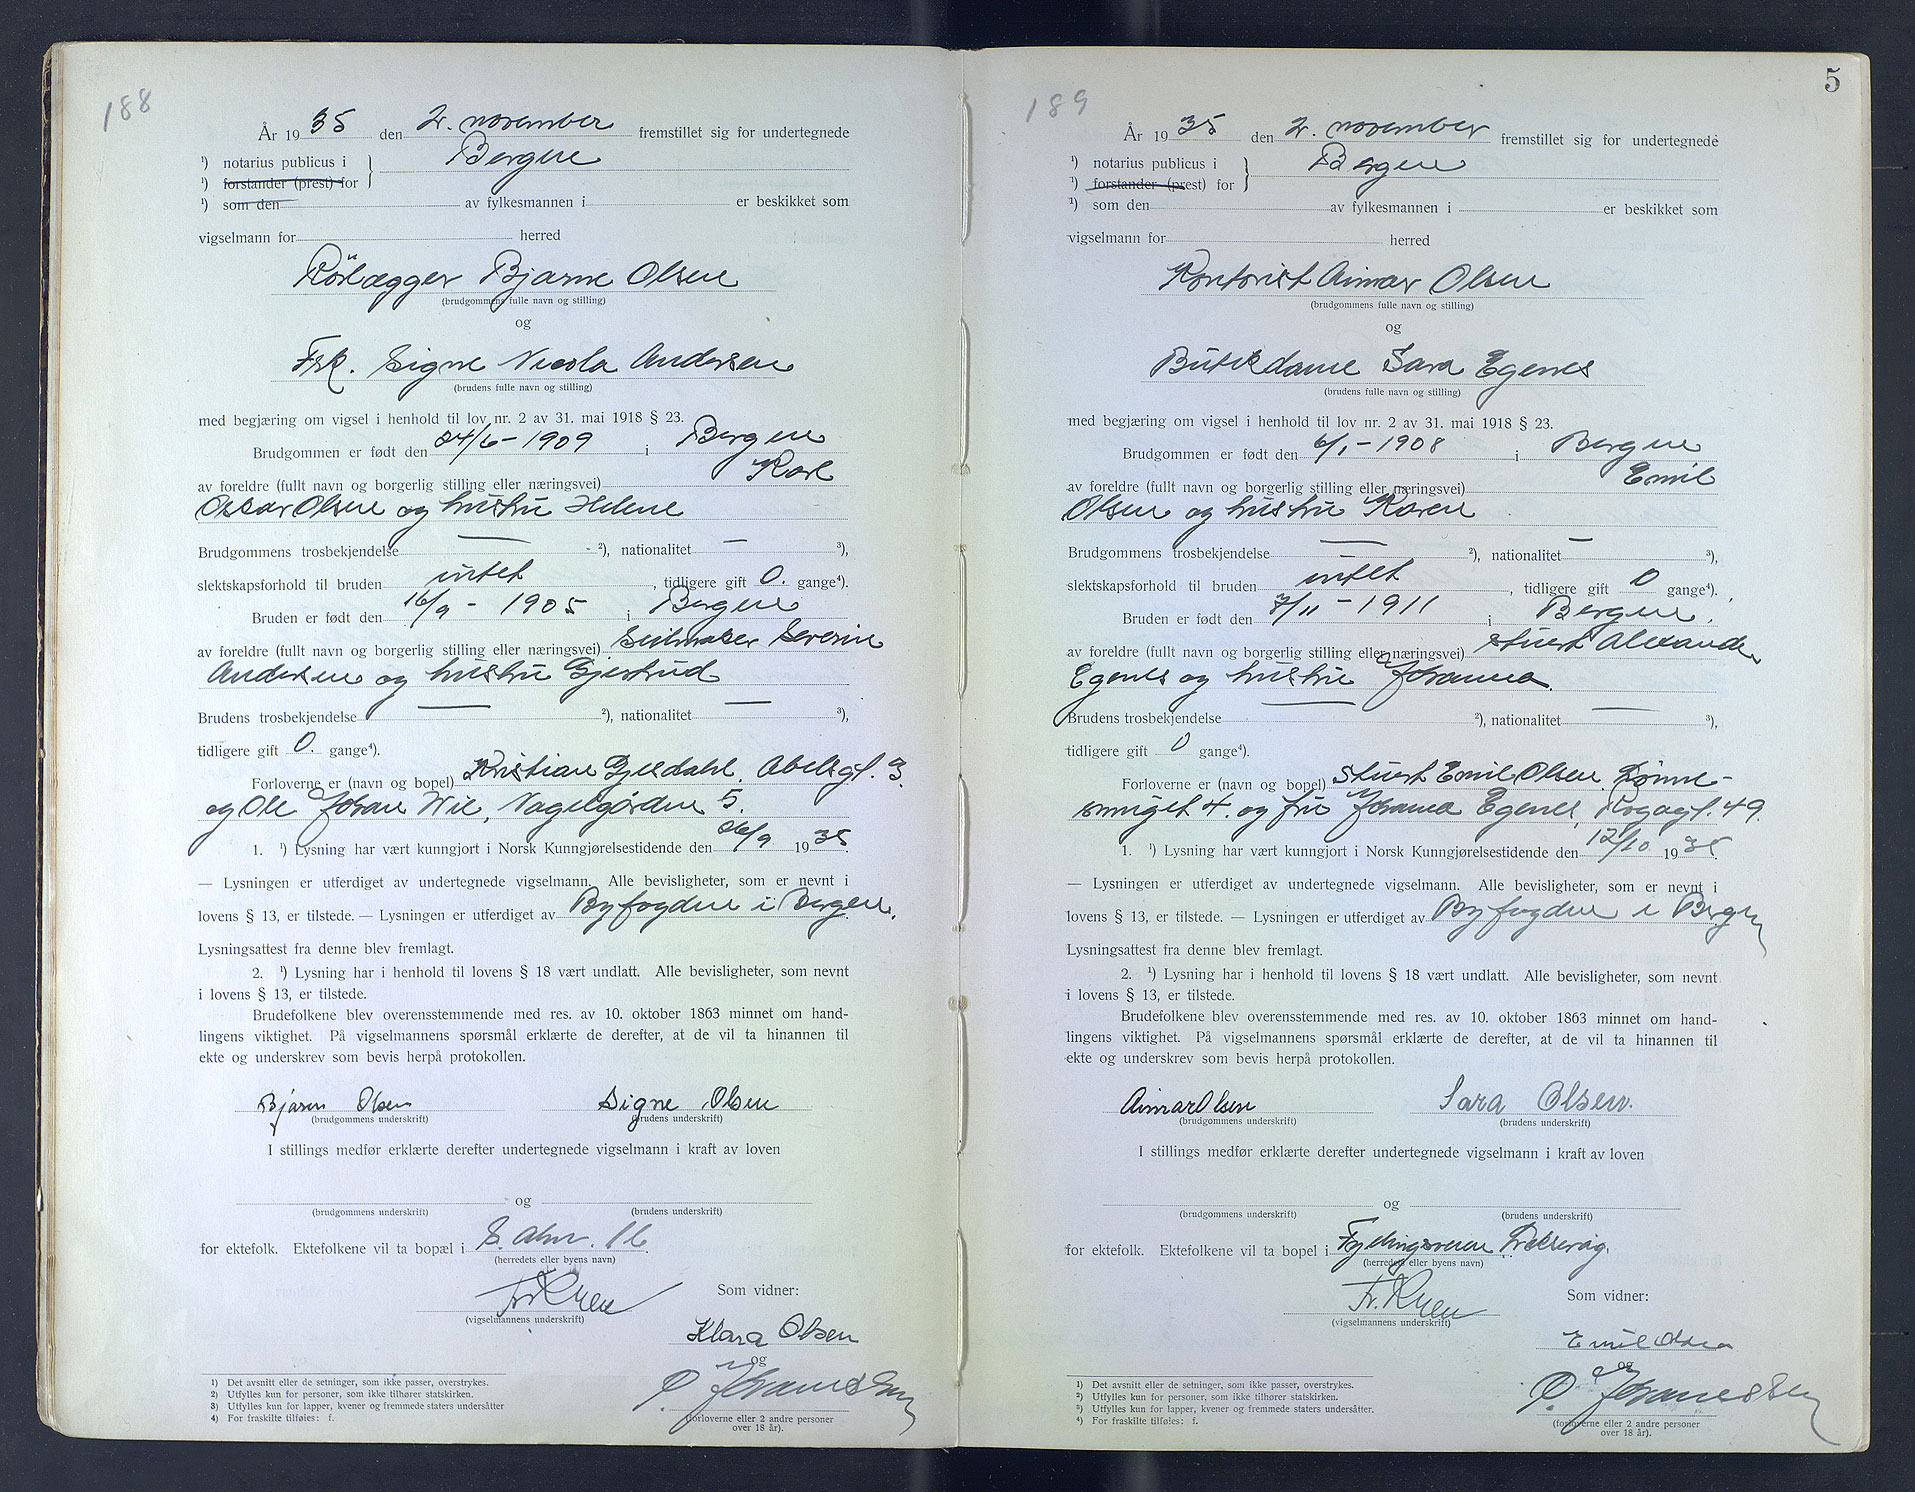 188
År 1935 den 2. november fremstillet sig for undertegnede
¹) notarius publicus i } Bergen
¹) forstander (prest) for
¹) som den av fylkesmannen i er beskikket som
vigselmann for herred
Rörlægger Bjarne Olsen
(brudgommens fulle navn og stilling)
og
Frk. Signe Andersen
(brudens fulle navn og stilling)
med begjæring om vigsel i henhold til lov nr. 2 av 31. mai 1918 § 23.
Brudgommen er født den 24/6 - 1909 i Bergen
av foreldre (fullt navn og borgerlig stilling eller næringsvei) Karl
Oskar Olsen og hustru Helene
Brudgommens trosbekjendelse — ²), nationalitet — ³),
slektskapsforhold til bruden intet, tidligere gift 0. gange⁴).
Bruden er født den 16/9 - 1905 i Bergen
av foreldre (fullt navn og borgerlig stilling eller næringsvei) Seilmaker Severin
Andersen og hustru Gjertrud
Brudens trosbekjendelse — ²), nationalitet — ³),
tidligere gift 0. gange⁴).
Forloverne er (navn og bopel) Kristian Gjesdahl, Abelsgt. 3
og Ole Johan Wie, Nagelgården 5.
1. ¹) Lysning har vært kunngjort i Norsk Kunngjørelsestidende den 26/9 1935.
— Lysningen er utferdiget av undertegnede vigselmann. Alle bevisligheter, som er nevnt i
lovens § 13, er tilstede. — Lysningen er utferdiget av Byfogden i Bergen.
Lysningsattest fra denne blev fremlagt.
2. ¹) Lysning har i henhold til lovens § 18 vært undlatt. Alle bevisligheter, som nevnt
i lovens § 13, er tilstede.
Brudefolkene blev overensstemmende med res. av 10. oktober 1863 minnet om hand-
lingens viktighet. På vigselmannens spørsmål erklærte de derefter, at de vil ta hinannen til
ekte og underskrev som bevis herpå protokollen.
Bjarne Olsen Signe Olsen
(brudgommens underskrift) (brudens underskrift)
I stillings medfør erklærte derefter undertegnede vigselmann i kraft av loven
og
(brudgommens underskrift) (brudens underskrift)
for ektefolk. Ektefolkene vil ta bopæl i 16.
(herredets eller byens navn)
(vigselmannens underskrift)
Som vidner:
Klara Olsen
og
P. Johannessen
(forloverne eller 2 andre personer
over 18 år).
1) Det avsnitt eller de setninger, som ikke passer, overstrykes.
2) Utfylles kun for personer, som ikke tilhører statskirken.
3) Utfylles kun for lapper, kvener og fremmede staters undersåtter
4) For fraskilte tilføies: f.
5
189
År 1935 den 2. november fremstillet sig for undertegnede
¹) notarius publicus i } Bergen
¹) forstander (prest) for
¹) som den av fylkesmannen i er beskikket som
vigselmann for herred
Kontorist Aimar Olsen
(brudgommens fulle navn og stilling)
og
Butikdame Sara Egenes
(brudens fulle navn og stilling)
med begjæring om vigsel i henhold til lov nr. 2 av 31. mai 1918 § 23.
Brudgommen er født den 6/1 - 1908 i Bergen
av foreldre (fullt navn og borgerlig stilling eller næringsvei) Emil
Olsen og hustru Karen
Brudgommens trosbekjendelse — ²), nationalitet — ³),
slektskapsforhold til bruden intet, tidligere gift 0 gange⁴).
Bruden er født den 7/11 - 1911 i Bergen.
av foreldre (fullt navn og borgerlig stilling eller næringsvei) stuert Alexander
Egenes og hustru Johanna.
Brudens trosbekjendelse — ²), nationalitet — ³),
tidligere gift 0 gange⁴).
Forloverne er (navn og bopel) Stuert Emil Olsen, Lønne-
smuget 4. og fru Johanna Egenes, 49.
1. ¹) Lysning har vært kunngjort i Norsk Kunngjørelsestidende den 12/10 1935.
— Lysningen er utferdiget av undertegnede vigselmann. Alle bevisligheter, som er nevnt i
lovens § 13, er tilstede. — Lysningen er utferdiget av Byfogden i Bergen
Lysningsattest fra denne blev fremlagt.
2. ¹) Lysning har i henhold til lovens § 18 vært undlatt. Alle bevisligheter, som nevnt
i lovens § 13, er tilstede.
Brudefolkene blev overensstemmende med res. av 10. oktober 1863 minnet om hand-
lingens viktighet. På vigselmannens spørsmål erklærte de derefter, at de vil ta hinannen til
ekte og underskrev som bevis herpå protokollen.
Aimar Olsen Sara Olsen.
(brudgommens underskrift) (brudens underskrift)
I stillings medfør erklærte derefter undertegnede vigselmann i kraft av loven
og
(brudgommens underskrift) (brudens underskrift)
for ektefolk. Ektefolkene vil ta bopel i Fyllingsveien
(herredets eller byens navn)
(vigselmannens underskrift)
Som vidner:
Emil Olsen
og
P. Johannessen
(forloverne eller 2 andre personer
over 18 år).
1) Det avsnitt eller de setninger, som ikke passer, overstrykes.
2) Utfylles kun for personer, som ikke tilhører statskirken.
3) Utfylles kun for lapper, kvener og fremmede staters undersåtter.
4) For fraskilte tilføies: f.